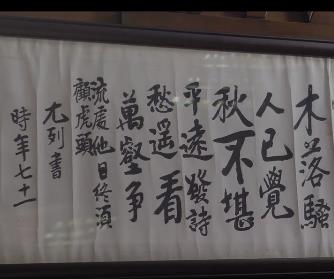 木落騷
人已覺
秋不堪
平遠發詩
愁遥看
萬壑争
流處他日終須
顧虎頭
尤列書
時年七十一